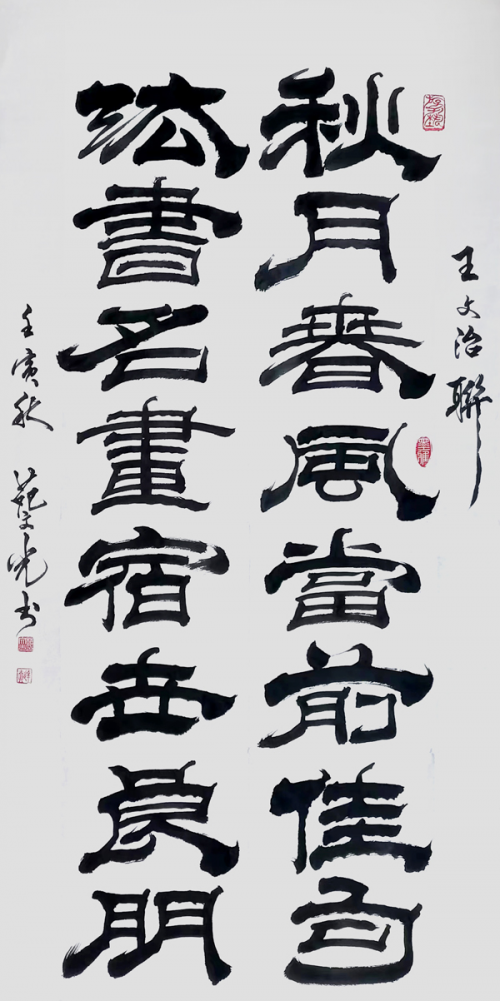 王文治聯
秋月春風當前佳句
法書名畫宿世良朋
壬寅秋 范文光书